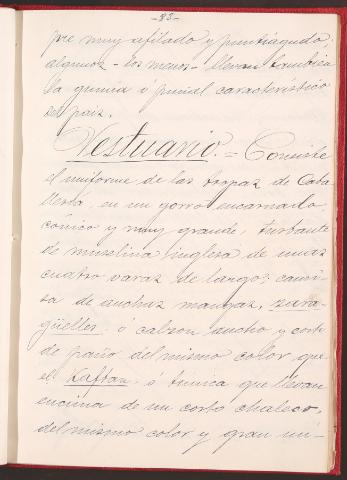 -83-
pre muy afilado y puntiagudo;
algunos - los menos - llevan tambien
la gumia ó puñal caracteristico
del pais.
Vestuario. = Consiste
el uniforme de las tropas de Caba
lleria, en un gorro encarnado
cónico y muy grande; turbante
de muselina inglesa de unas
cuatro varas de largo; cami-
sa de anchas mangas, zara-
güelles ó calzon ancho y corto
de paño del mismo color que
el Kaftan, ó tunica que llevan
encima de un corto chaleco,
del mismo color y gran nú-